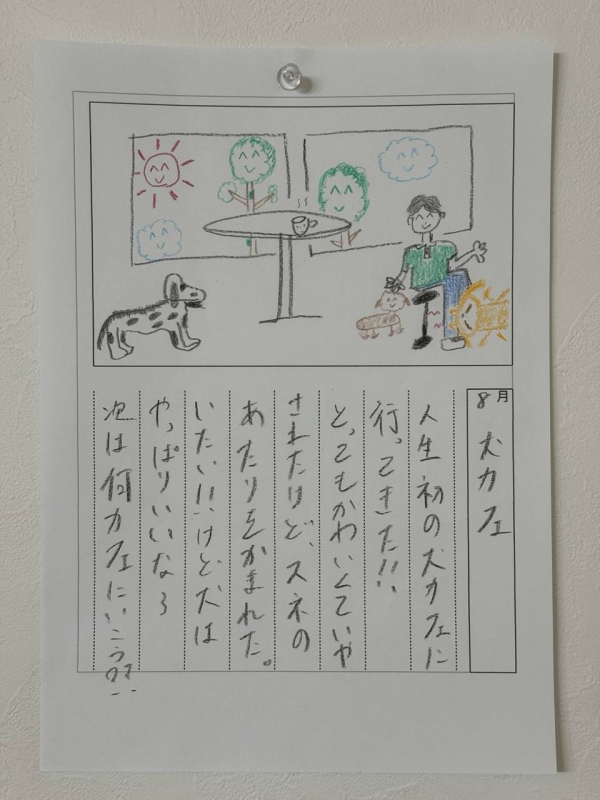 8月
犬カフェ
人生初の犬カフェに
行ってきた!!
とってもかわいくていや
されたけど、スネの
あたりをかまれた。
いたい!!けど犬は
やっぱりいいなぁ
次は何カフェにいこうかな…